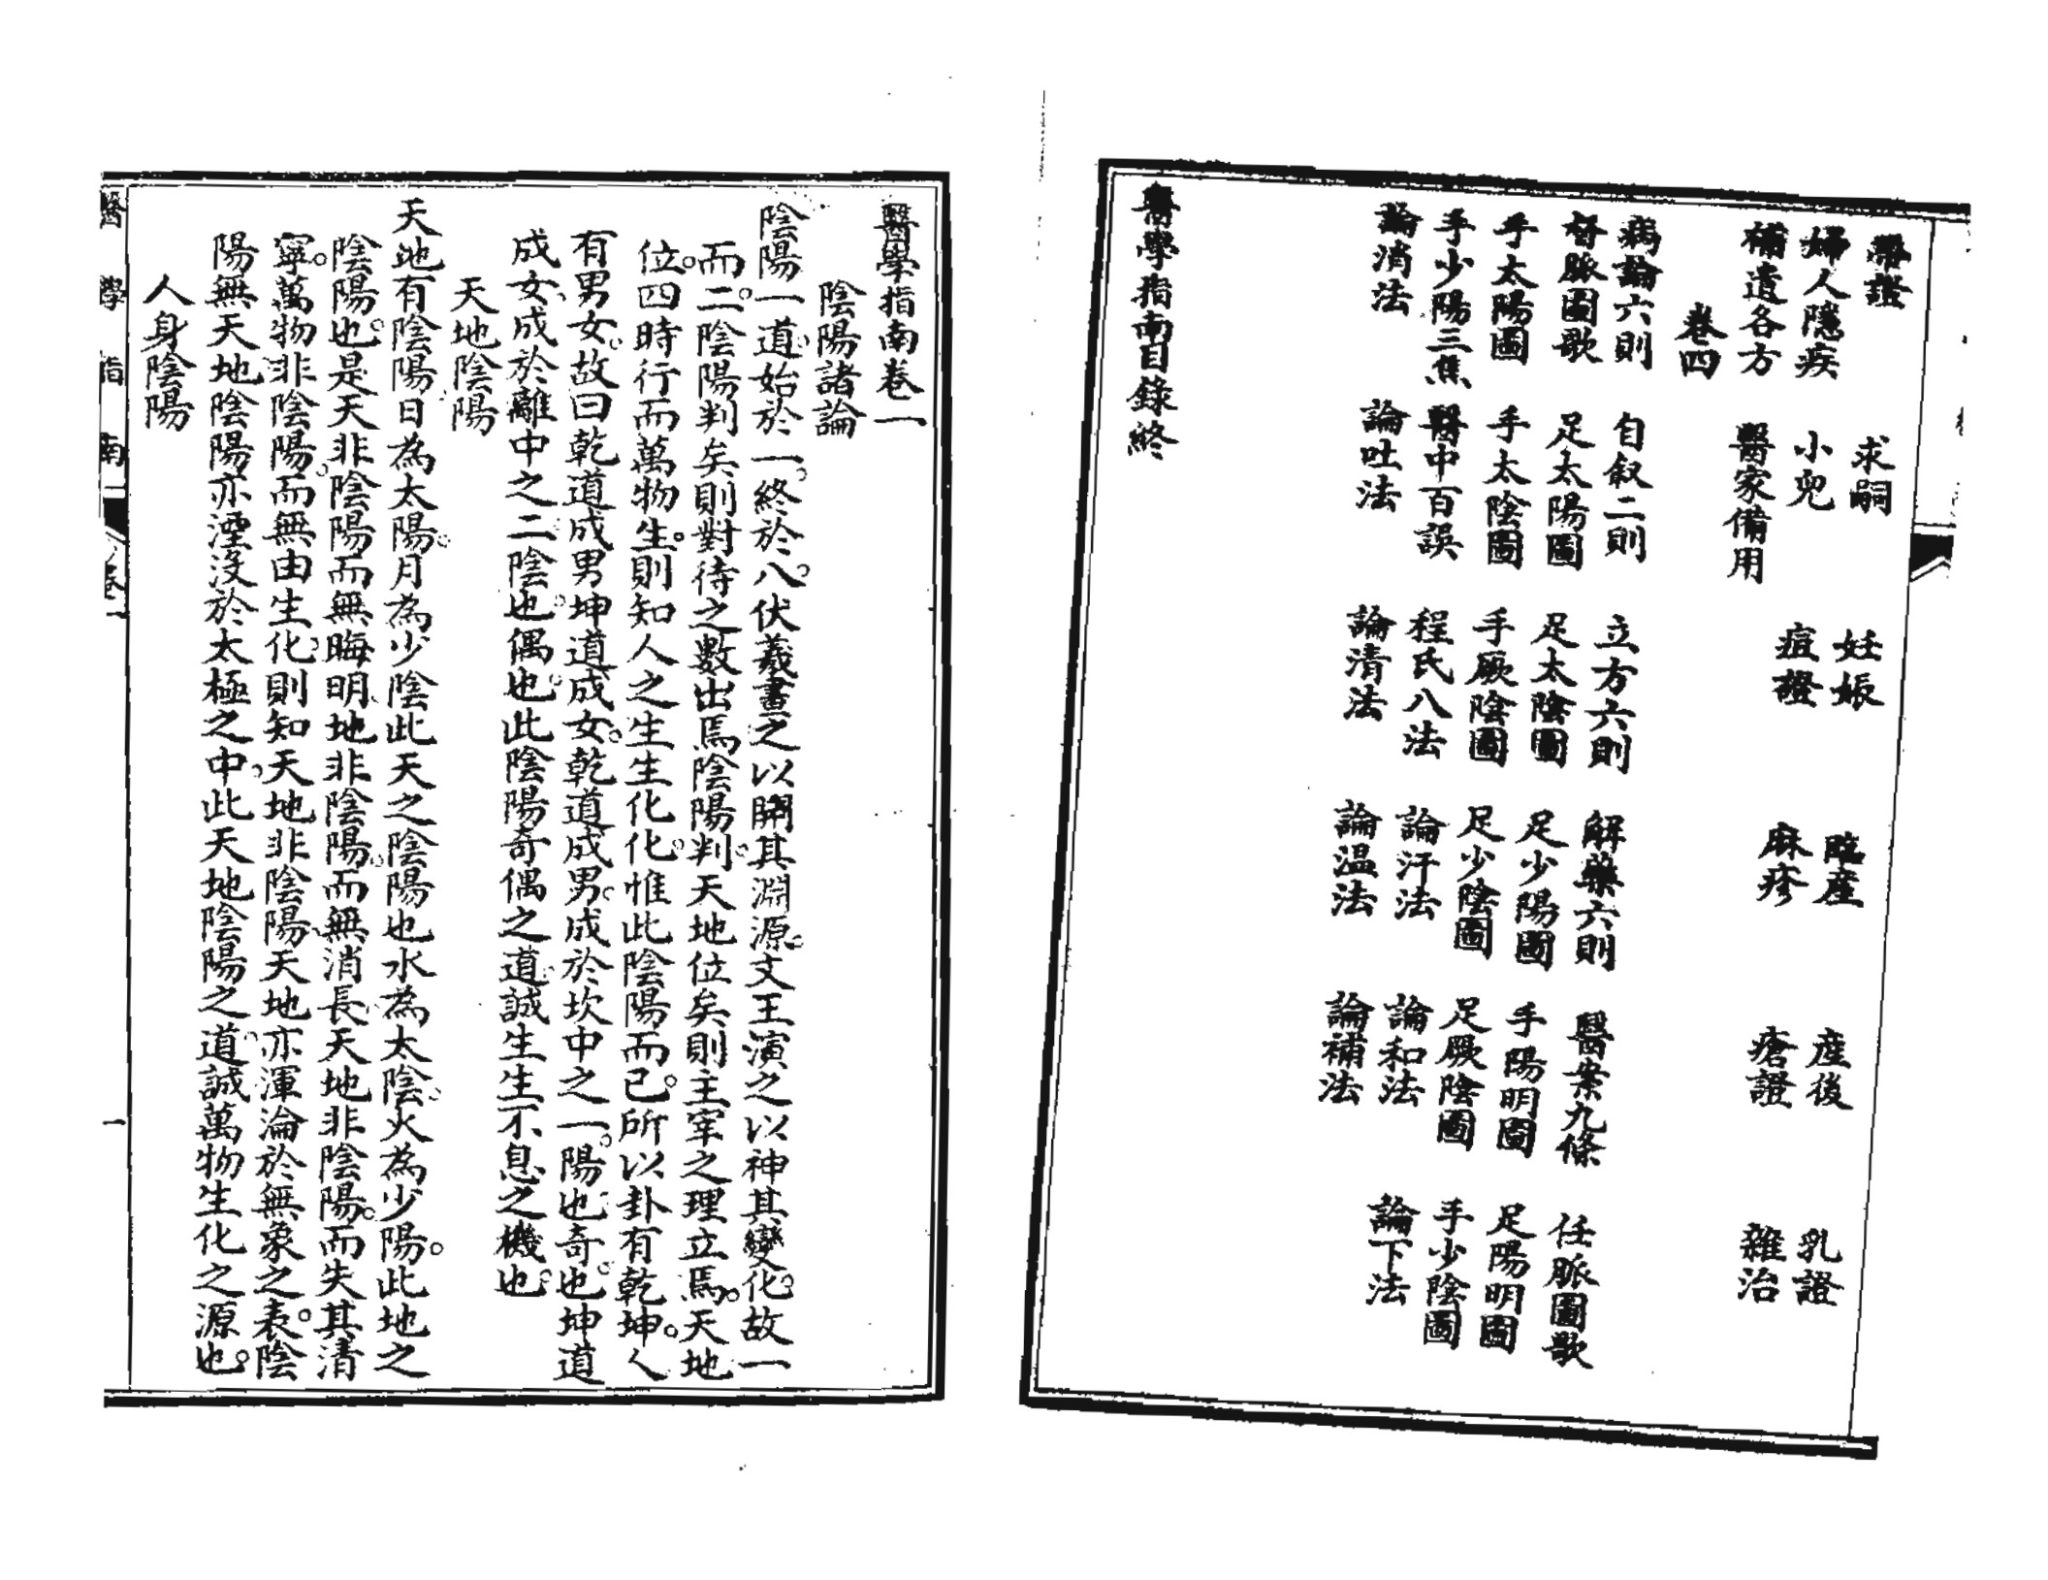 帶證 求嗣 妊娠 臨産 産後 乳證
婦人隱疾 小兒 痘證 麻疹 瘡證 雜治
補遺各方 醫家備用
卷四
病論六則 自叙二則 立方六則 解藥六則 醫案九條 任脈圖歌
督脈圖歌 足太陽圖 足太陰圖 足少陽圖 手陽明圖 足陽明圖
手太陽圖 手太陰圖 手厥陰圖 足少陰圖 足厥陰圖 手少陰圖
手少陽三焦 醫中百誤 程氏八法 論汗法 論和法 論下法
論消法 論吐法 論清法 論温法 論補法
醫學指南目錄終
醫學指南卷一
陰陽諸論
陰陽一道始於一。終於八。伏羲畫之以開其淵源。文王演之以神其變化。故一
而二。陰陽判矣則對待之數出焉陰陽判。天地位矣則主宰之理立焉。天地
位。四時行而萬物生。則知人之生生化化。惟此陰陽而已。所以卦有乾坤。人
有男女。故曰乾道成男坤道成女。乾道成男。成於坎中之一。陽也奇。也坤道
成女。成於離中之二陰也。偶也。此陰陽奇偶之道。誠生生不息之機也。
天地陰陽
天地有陰陽日為太陽。月為少陰此天之陰陽也水為太陰。火為少陽。此地之
陰陽也。是天非陰陽而無晦明。地非陰陽。而無消長。天地非陰陽。而失其清
寧。萬物非陰陽。而無由生化。則知天地非陰陽。天地亦渾淪於無象之表。陰
陽無天地陰陽亦湮沒於太極之中。此天地陰陽之道。誠萬物生化之源也。
人身陰陽
醫學指南 卷一 一